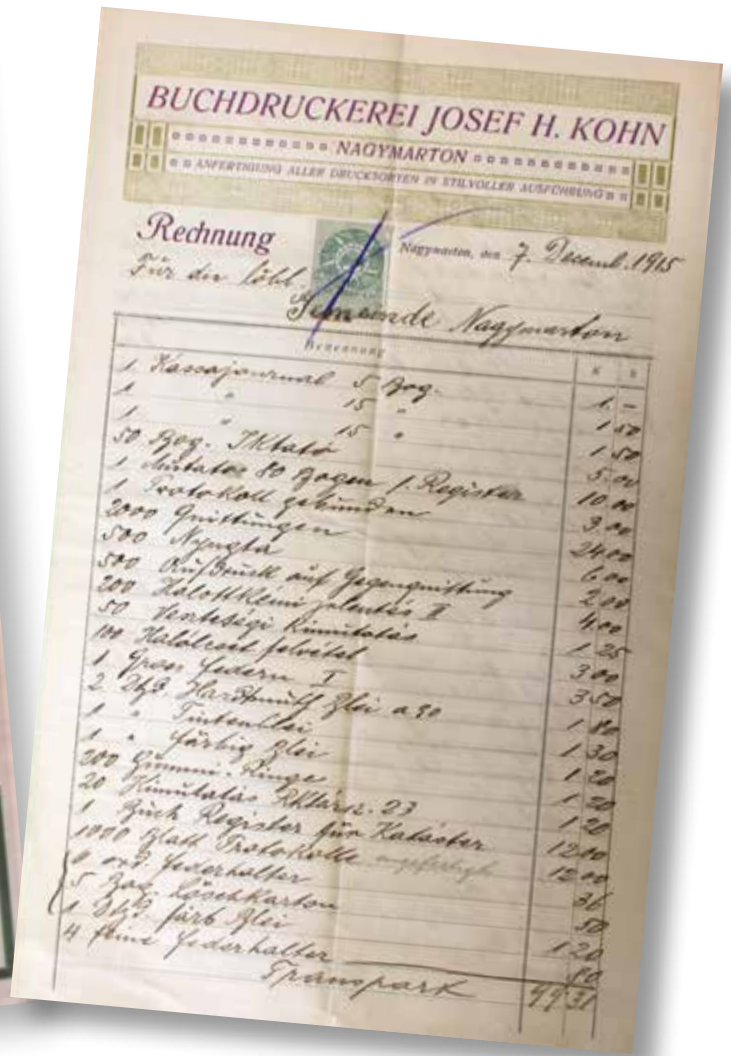 BUCHDRUCKEREI JOSEF H. KOHN
NAGYMARTON
ANFERTIGUNG ALLER DRUCKSORTEN IN STILVOLLER AUSFÜHRUNG
Rechnung
Nagymarton, den 7. Decemb. 1915
Für die löbl.
Gemeinde Nagymarton
Benennung K h
1 Kassajournal 5 Bog. 1.–
1 " 15 " 1 50
1 " 15 " 1 50
50 Bog. Iktató 5.00
1 Mutator 80 Bogen 1. Register 10 00
1 Protokoll gebunden 3.00
2000 Quittungen 24 00
500 Nyugta 6 00
500 Aufdruck auf Gegenquittung 2 00
200 Halottkémi jelentés II 4 00
50 Vesteségi Kimutatás 1 25
100 Haláleset felvétel 3 00
1 Gross Federn I 3 50
2 Dtzd. Hardtmuth Blei a 90 1 80
1 " Tintenblei 1 30
1 " färbig Blei 1 20
200 Gummi-Ringe 1 20
20 Kimutatás 23 1 20
1 Buch Register für Kataster 12 00
1000 Blatt Protokolle angefertigt 12 00
ord. Federhalter 36
5 Bog. Löschkarton 50
1 Dtzd. färb Blei 1 20
4 feine Federhalter 80
Transport 99 31